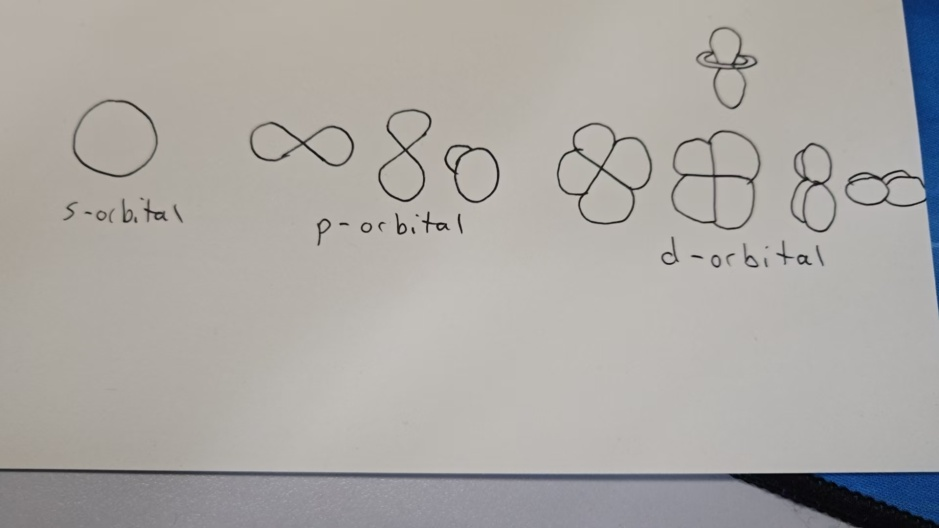 s-orbital
p-orbital
d-orbital